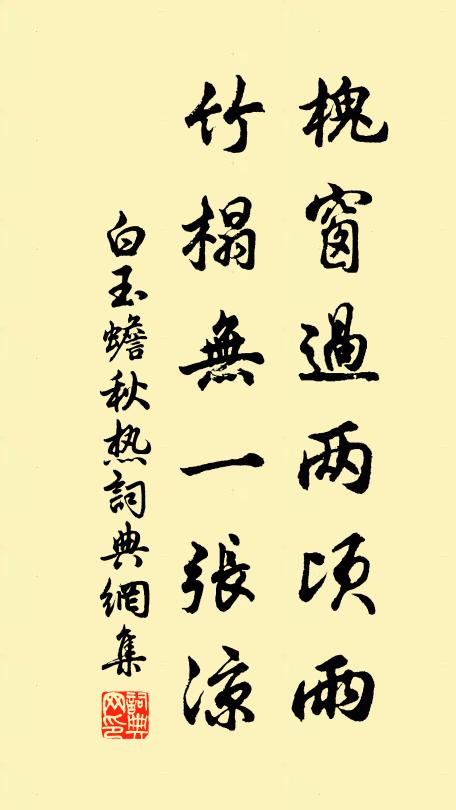 槐窗過两頃雨
竹榻無一張凉
白玉蟾秋热詞典網集
詞典网印